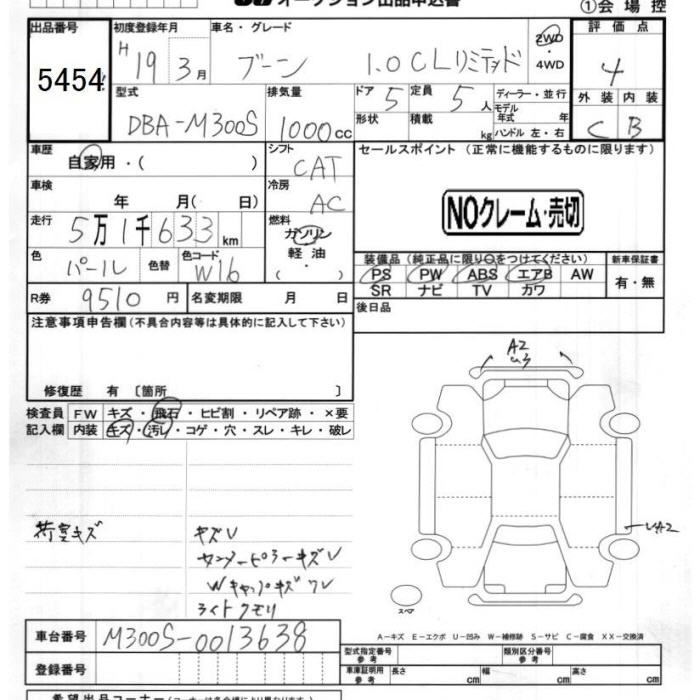 オークション出品申込書
①会場控
出品番号 初度登録年月 車名・グレード 2WD・4WD 評価点
5454 H19 3月 ブーン 1.0 CLリミテッド 4
型式 排気量 ドア 5 定員 5人 ディーラー・並行 外装 内装
DBA-M300S 1000cc 形状 積載 kg モデル年式 年 ハンドル 左・右 C B
車歴 自家用・( ) シフト CAT セールスポイント (正常に機能するものに限ります)
車検 年 月( 日) 冷房 AC
NOクレーム・売切
走行 5万1千633km 燃料 ガソリン 軽油 ( ・ )
色 パール 色替 色コード W16
装備品 (純正品に限り○をつけてください) 新車保証書
PS PW ABS エアB AW 有・無
SR ナビ TV カワ
R券 9510円 名変期限 月 日
後日品
注意事項申告欄(不具合内容等は具体的に記入して下さい)
修復歴 有 〔箇所 〕
検査員記入欄 FW キズ・飛石・ヒビ割・リペア跡・×要
内装 キズ・汚れ・コゲ・穴・スレ・キレ・破レ
A2
U3
UA2
荷室キズ キズU
センターピラーキズU
Wキャップキズ ワレ
ライトクモリ
スペア
車台番号 M300S-0013638
A-キズ E-エクボ U-凹み W-補修跡 S-サビ C-腐食 XX-交換済
型式指定番号 参考 類別区分番号 参考
登録番号 車庫証明用 参考 長さ cm 幅 cm 高さ cm
希望出品コーナー